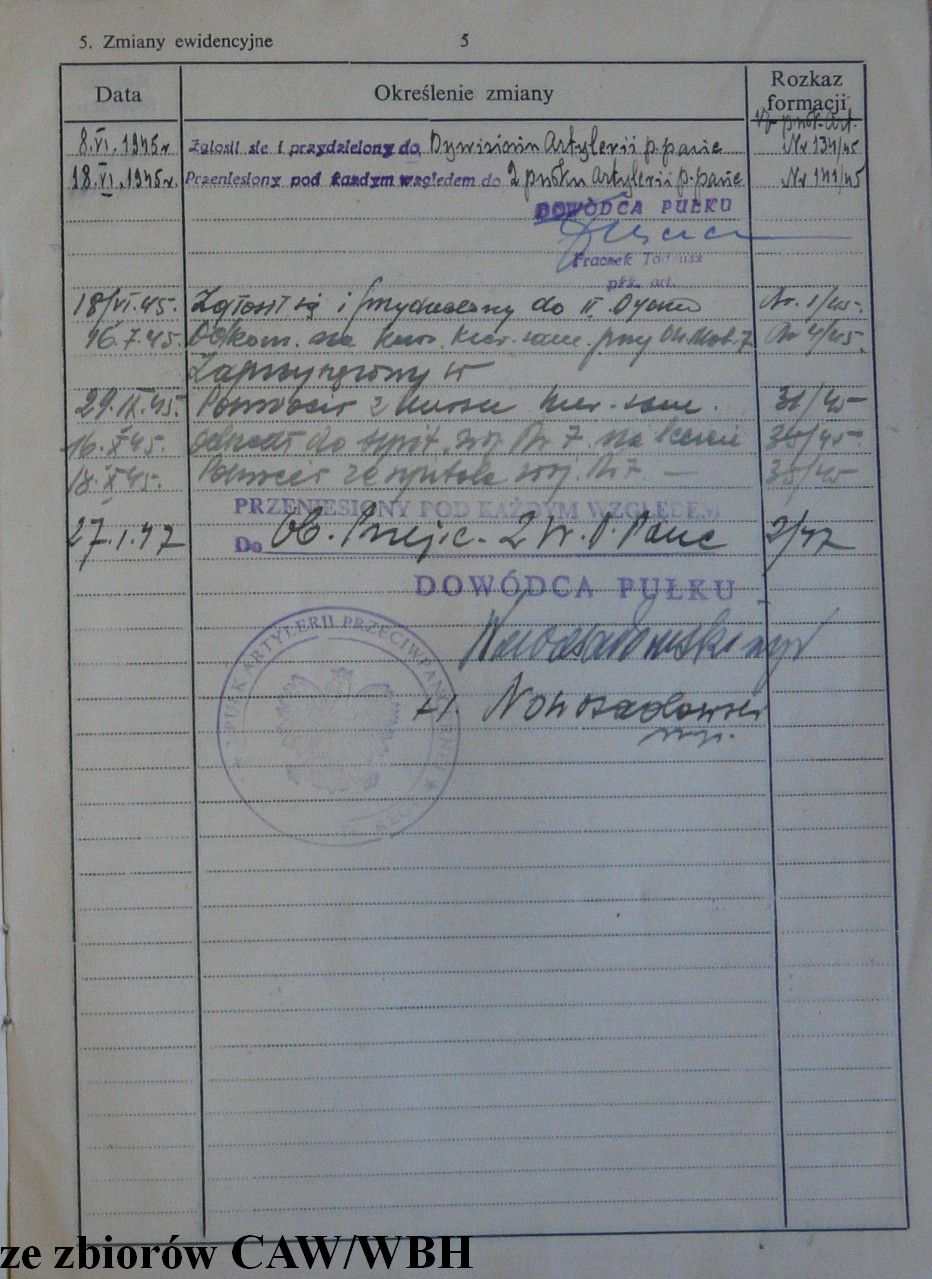 5. Zmiany ewidencyjne 5
Data Określenie zmiany Rozkaz formacji
pułk. Art.
8.VI.1945r Zgłosił się i przydzielony do Dywizionu Artylerii p.panc Nr 134/45
18.VI.1945r. Przeniesiony pod każdym względem do 2 pułku Artylerii p.panc Nr 141/45
DOWÓDCA PUŁKU
Fraczek Tadeusz
płk. art.
18/VI.45. Zgłosił się i przydzielony do II. Dyonu Nr. 1/45.
16.7.45. Odkom. na kurs. kier. sam. przy 7 Nr 4/45.
29.IX.45. Powrócił z kursu kier. sam. 31/45
16.X.45. odszedł do szpit. woj. Nr 7. na 35/45
18.X.45. Powrócił ze szpitala woj. Nr 7 — 35/45
PRZENIESIONY POD KAŻDYM WZGLĘDEM
27.1.47 Do Ob. Przejśc. 2 W. D. Panc 2/47
DOWÓDCA PUŁKU
Nowosadowski mjr
Nowosadowski
mjr.
PUŁK ARTYLERII PRZECIWPANCERNEJ
ze zbiorów CAW/WBH